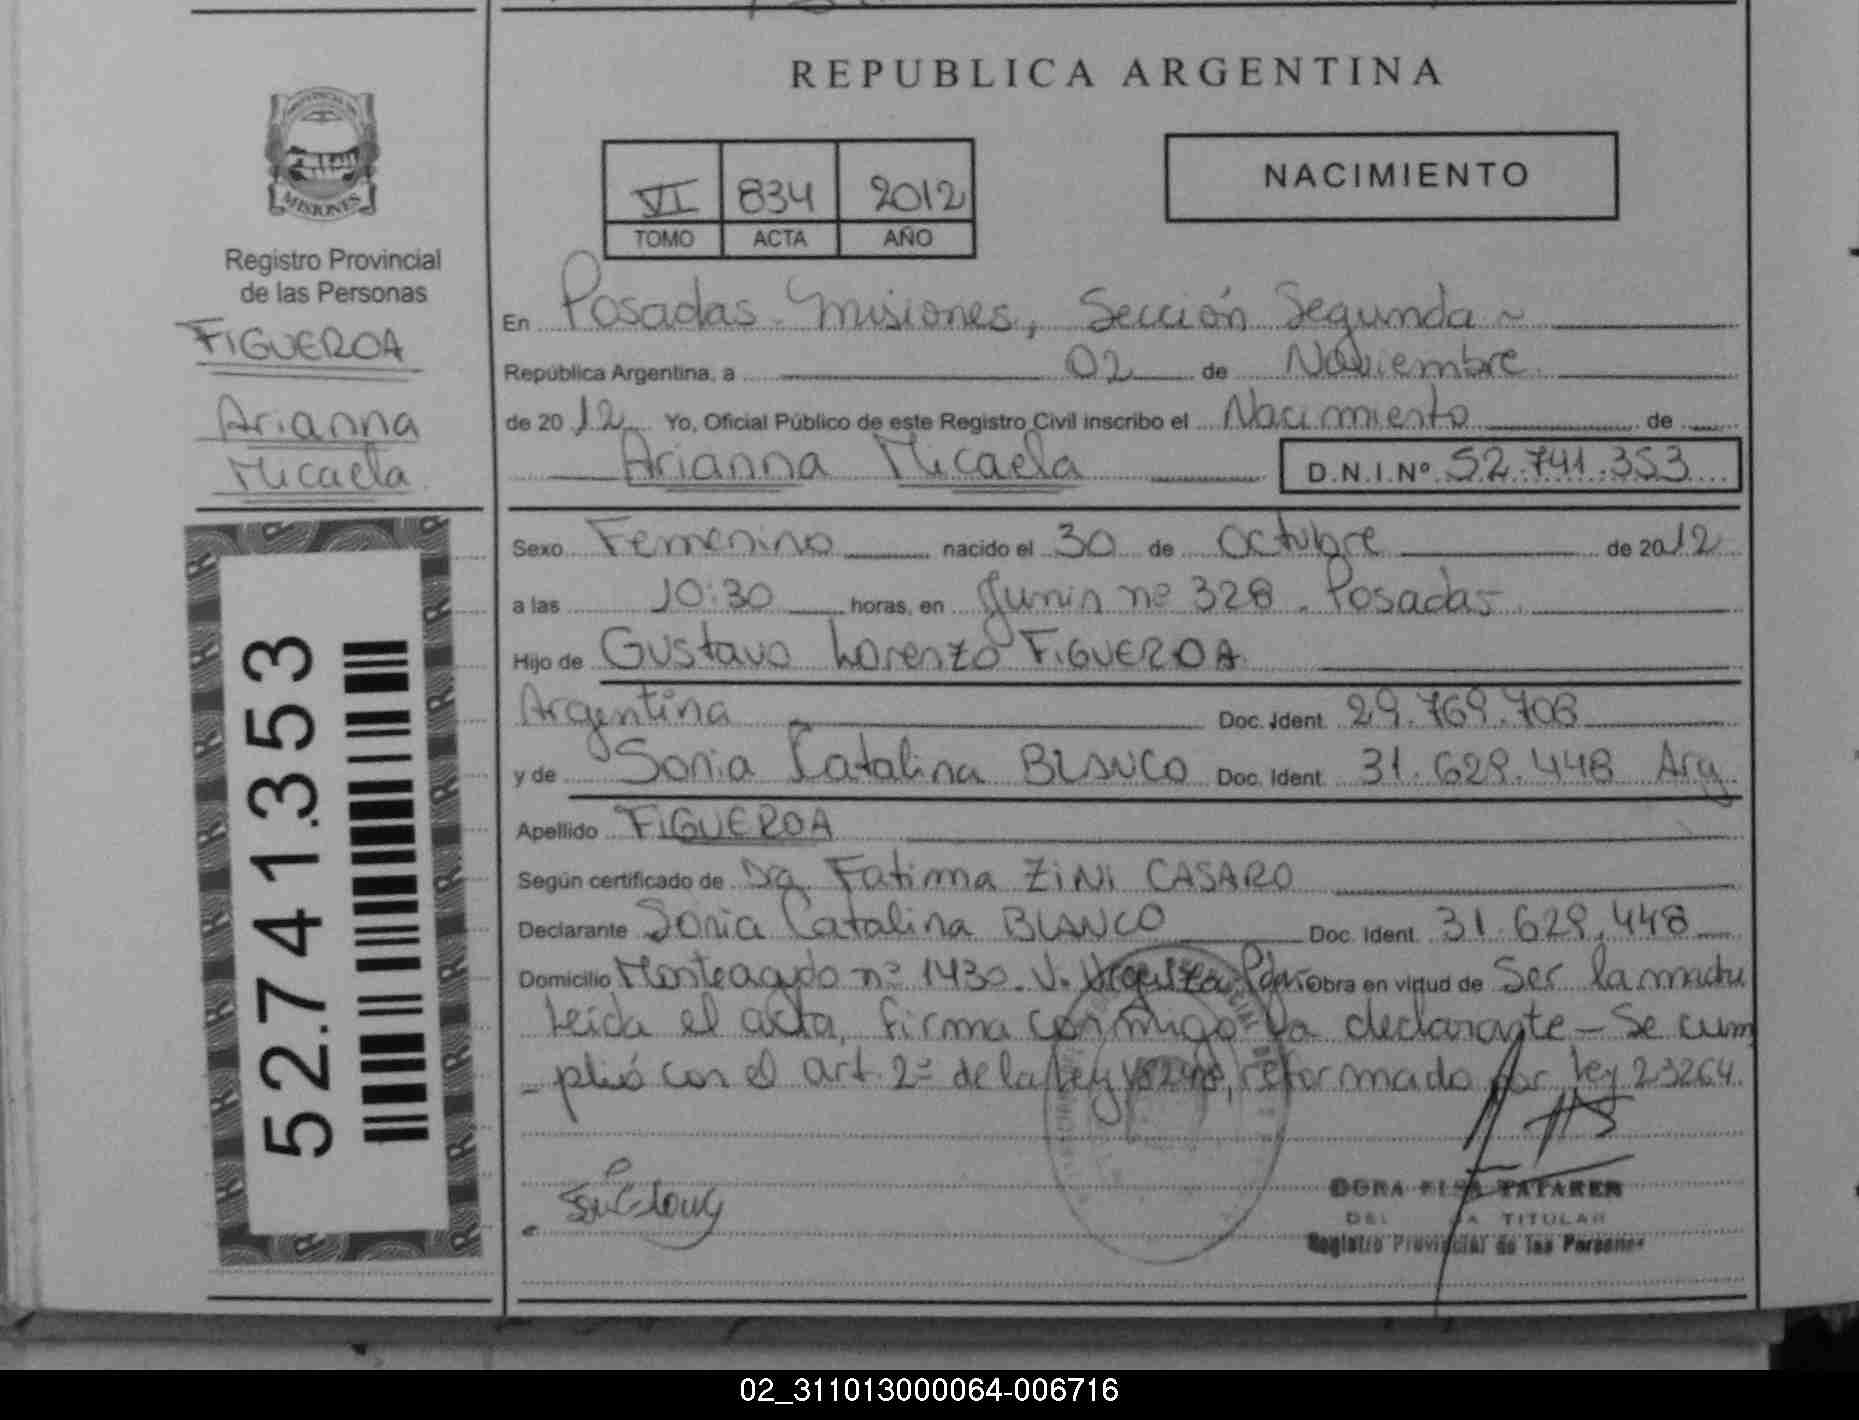 REPUBLICA ARGENTINA
NACIMIENTO
VI 834 2012
TOMO ACTA AÑO
MISIONES
Registro Provincial
de las Personas
FIGUEROA
Arianna
Micaela
52.741.353
En Posadas - Misiones, Sección Segunda
República Argentina, a 02 de Noviembre
de 2012 Yo, Oficial Público de este Registro Civil inscribo el Nacimiento de
Arianna Micaela D.N.I.Nº 52.741.353
Sexo Femenino nacido el 30 de Octubre de 2012
a las 10:30 horas, en Junin nº 328 - Posadas
Hijo de Gustavo Lorenzo FIGUEROA
Argentina Doc. Ident. 29.769.708
y de Sonia Catalina BLANCO Doc. Ident. 31.629.448 Arg.
Apellido FIGUEROA
Según certificado de Dra. Fatima ZINI CASARO
Declarante Sonia Catalina BLANCO Doc. Ident. 31.629.448
Domicilio Monteagudo nº 1430 - V. Urquiza Obra en virtud de Ser la madre
Leida el acta, firma conmigo la declarante - Se cum
- plió con el art. 2º de la Ley 18248, reformado por Ley 23264.
TITULAR
Registro Provincial de las Personas
02_311013000064-006716